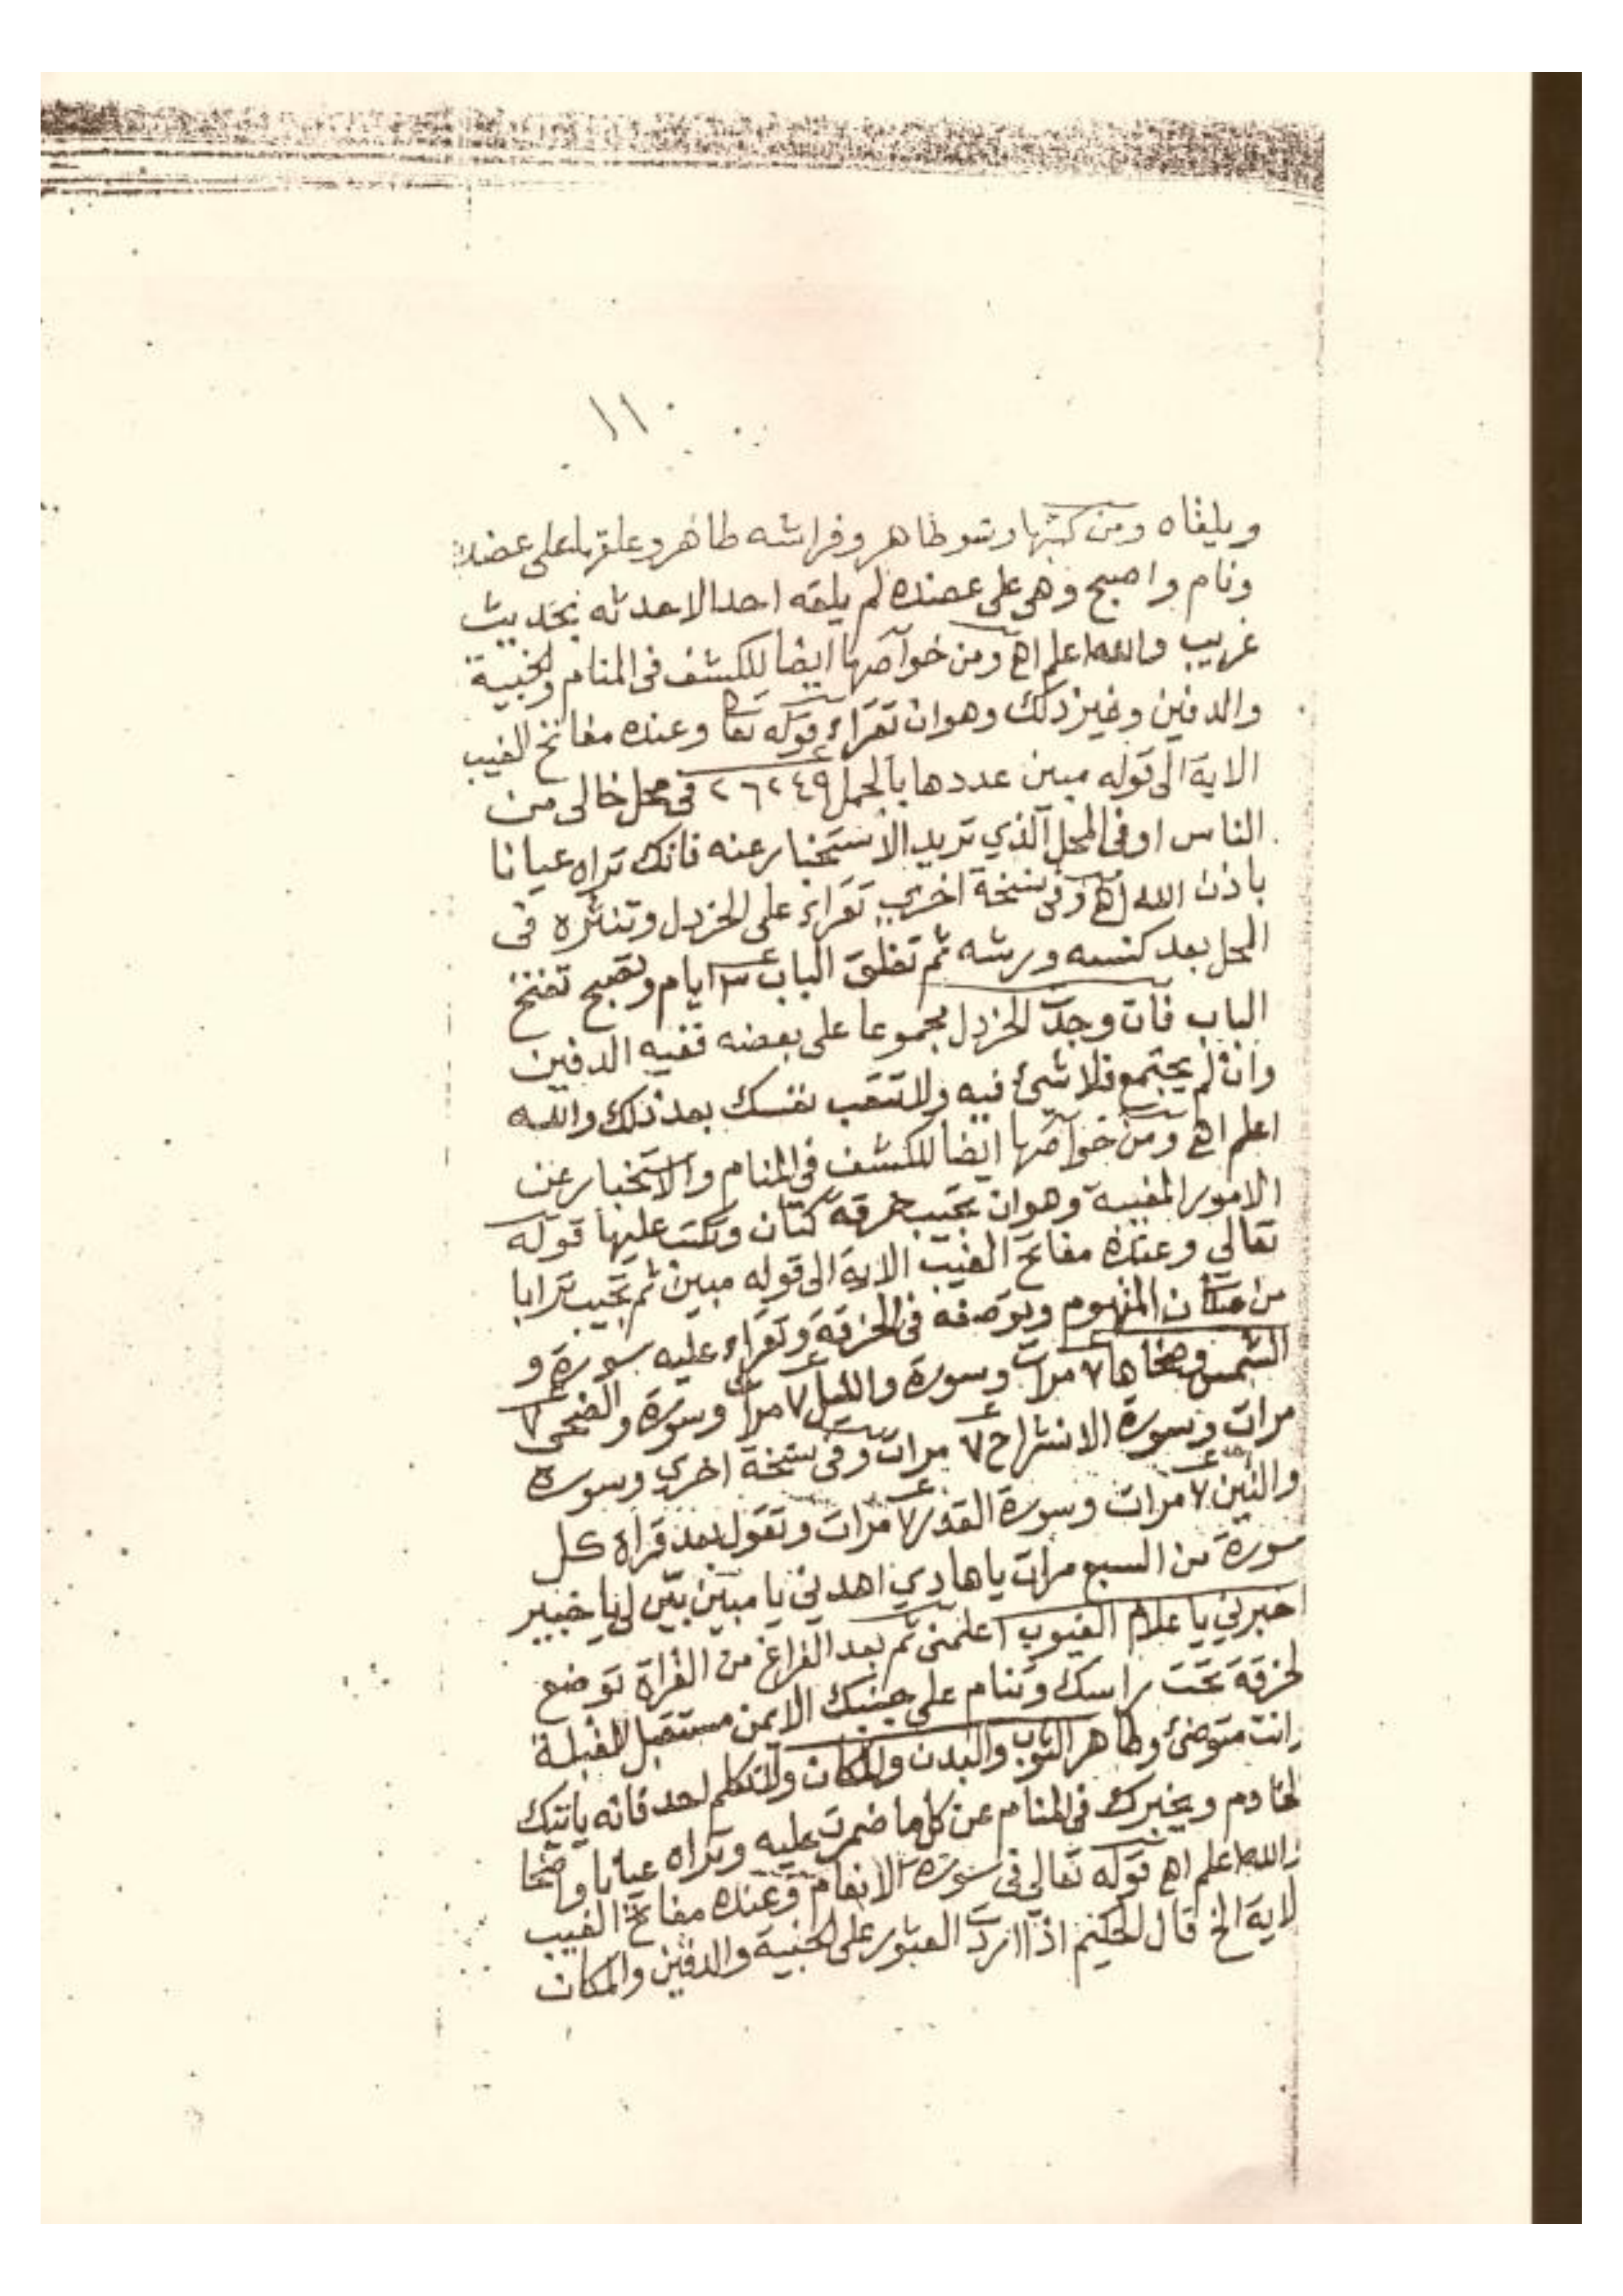 ١١
ويلقاه ومن كتبها وتو طاهر وفراشه طاهر وعلقها على عضده
ونام واصبح وهى على عضده لم يلقه احدا الا حدثه بحديث
غريب والله اعلم اهـ ومن خواصها ايضا للكشف فى المنام والخبية
والدفين وغير ذلك وهو ان تقراء قوله تعا وعنده مفاتح الغيب
الاية الى قوله مبين عددها بالجمل ٢٦٢٤٩ فى محل خالى من
الناس او فى المحل الذي تريد الاستخبار عنه فانك تراه عيانا
باذن الله اهـ وفى نسخة اخري تقراء على الخردل وتنثره فى
المحل بعد كنسه ورشه ثم تغلق الباب ٣ ايام وتصبح تفتح
الباب فان وجدت الخردل مجموعا على بعضه ففيه الدفين
وان لم يجتمع فلا شئ فيه ولا تتعب نفسك بعد ذلك والله
اعلم اهـ ومن خواصها ايضا للكشف فى المنام والاستخبار عن
الامور المغيبة وهو ان تجيب خرقة كتان وتكتب عليها قوله
تعالي وعنده مفاتح الغيب الاية الى قوله مبين ثم تجيب ترابا
من مكان المتهوم وتوضعه فى الخرقة وتقراء عليه سورة و
الشمس وضحاها ٧ مرات وسورة والليل ٧ مرات وسورة والضحى ٧
مرات وسورة الانشراح ٧ مرات وفى نسخة اخري وسورة
والتين ٧ مرات وسورة القدر ٧ مرات وتقول بعد قراة كل
سورة من السبع مرات يا هادي اهدني يا مبين بين لي يا خبير
خبرني يا علام الغيوب اعلمنى ثم بعد الفراغ من القراة توضع
لخرقة تحت راسك وتنام على جنبك الايمن مستقبل القبلة
وانت متوضئ وطاهر الثوب والبدن والمكان ولا تتكلم لحد فانه ياتيك
لخادم ويخبرك فى المنام عن كل ما ضمرت عليه وتراه عيانا واضحا
والله اعلم اهـ قوله تعالي فى سورة الانعام وعنده مفاتح الغيب
لاية الخ قال الحكيم اذا اردت العبور على الخبية والدفين والمكان